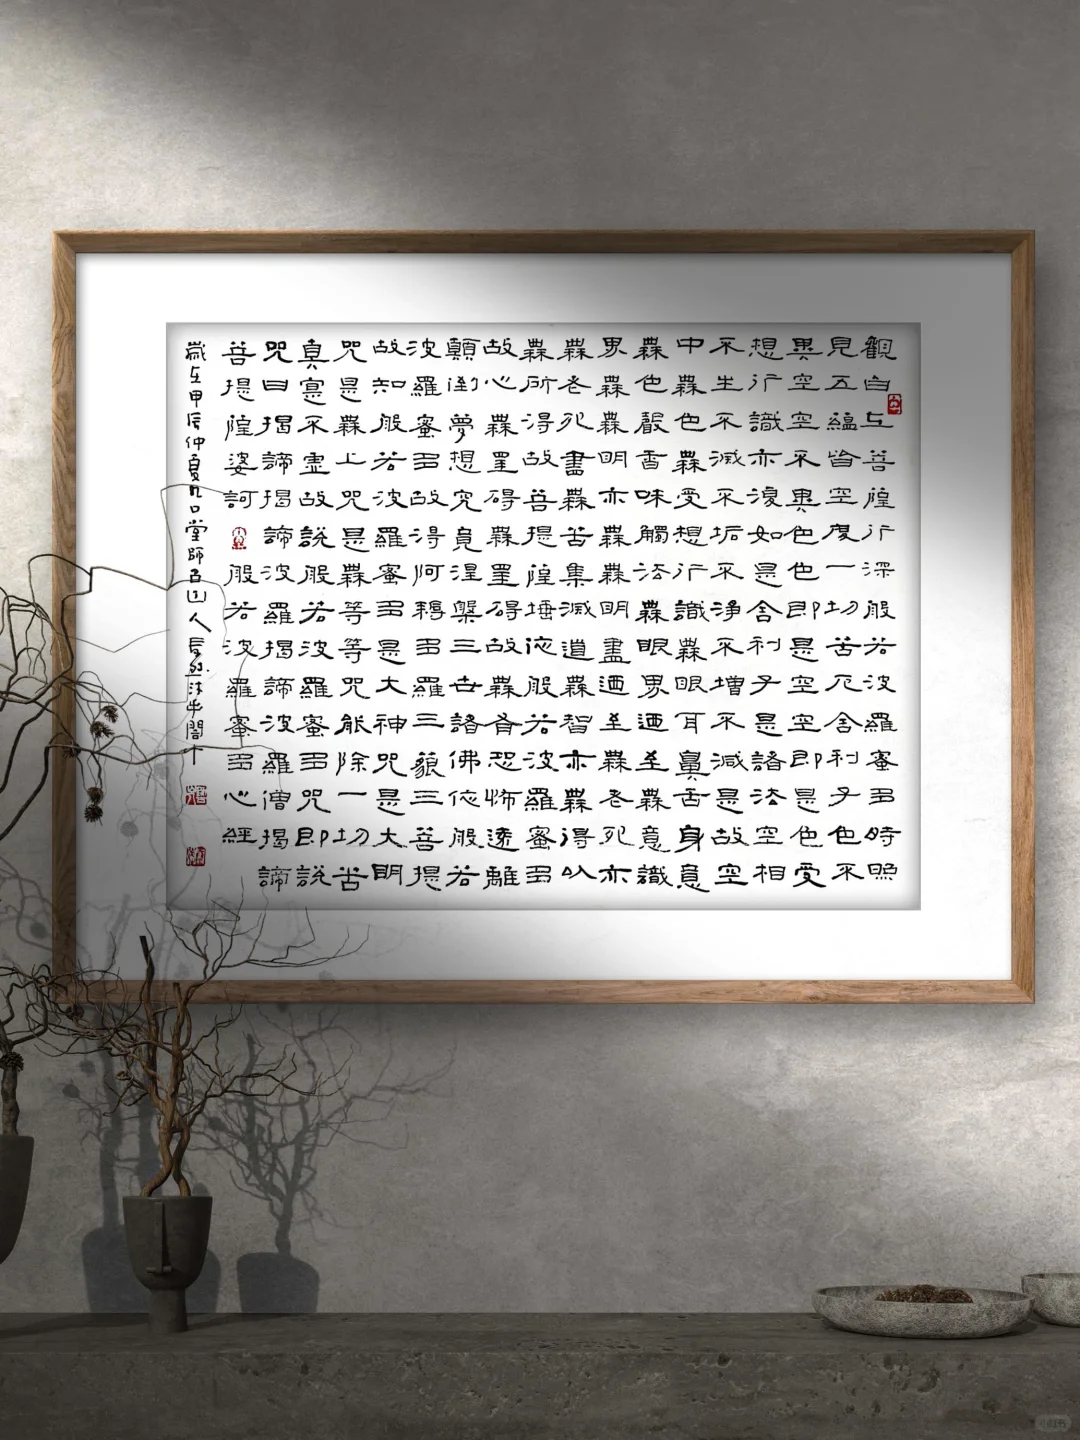 觀自在菩薩行深般若波羅蜜多時照
見五蘊皆空度一切苦厄舍利子色不
異空空不異色色即是空空即是色受
想行識亦復如是舍利子是諸法空相
不生不滅不垢不淨不增不減是故空
中無色無受想行識無眼耳鼻舌身意
無色聲香味觸法無眼界迺至無意識
界無無明亦無無明盡迺至無老死亦
無老死盡無苦集滅道無智亦無得以
無所得故菩提薩埵依般若波羅蜜多
故心無罣礙無罣礙故無有恐怖遠離
顛倒夢想究竟涅槃三世諸佛依般若
波羅蜜多故得阿耨多羅三藐三菩提
故知般若波羅蜜多是大神咒是大明
咒是無上咒是無等等咒能除一切苦
真實不虛故說般若波羅蜜多咒即說
咒曰揭諦揭諦波羅揭諦波羅僧揭諦
菩提薩婆訶 般若波羅蜜多心經
歲在甲辰仲夏
小红书